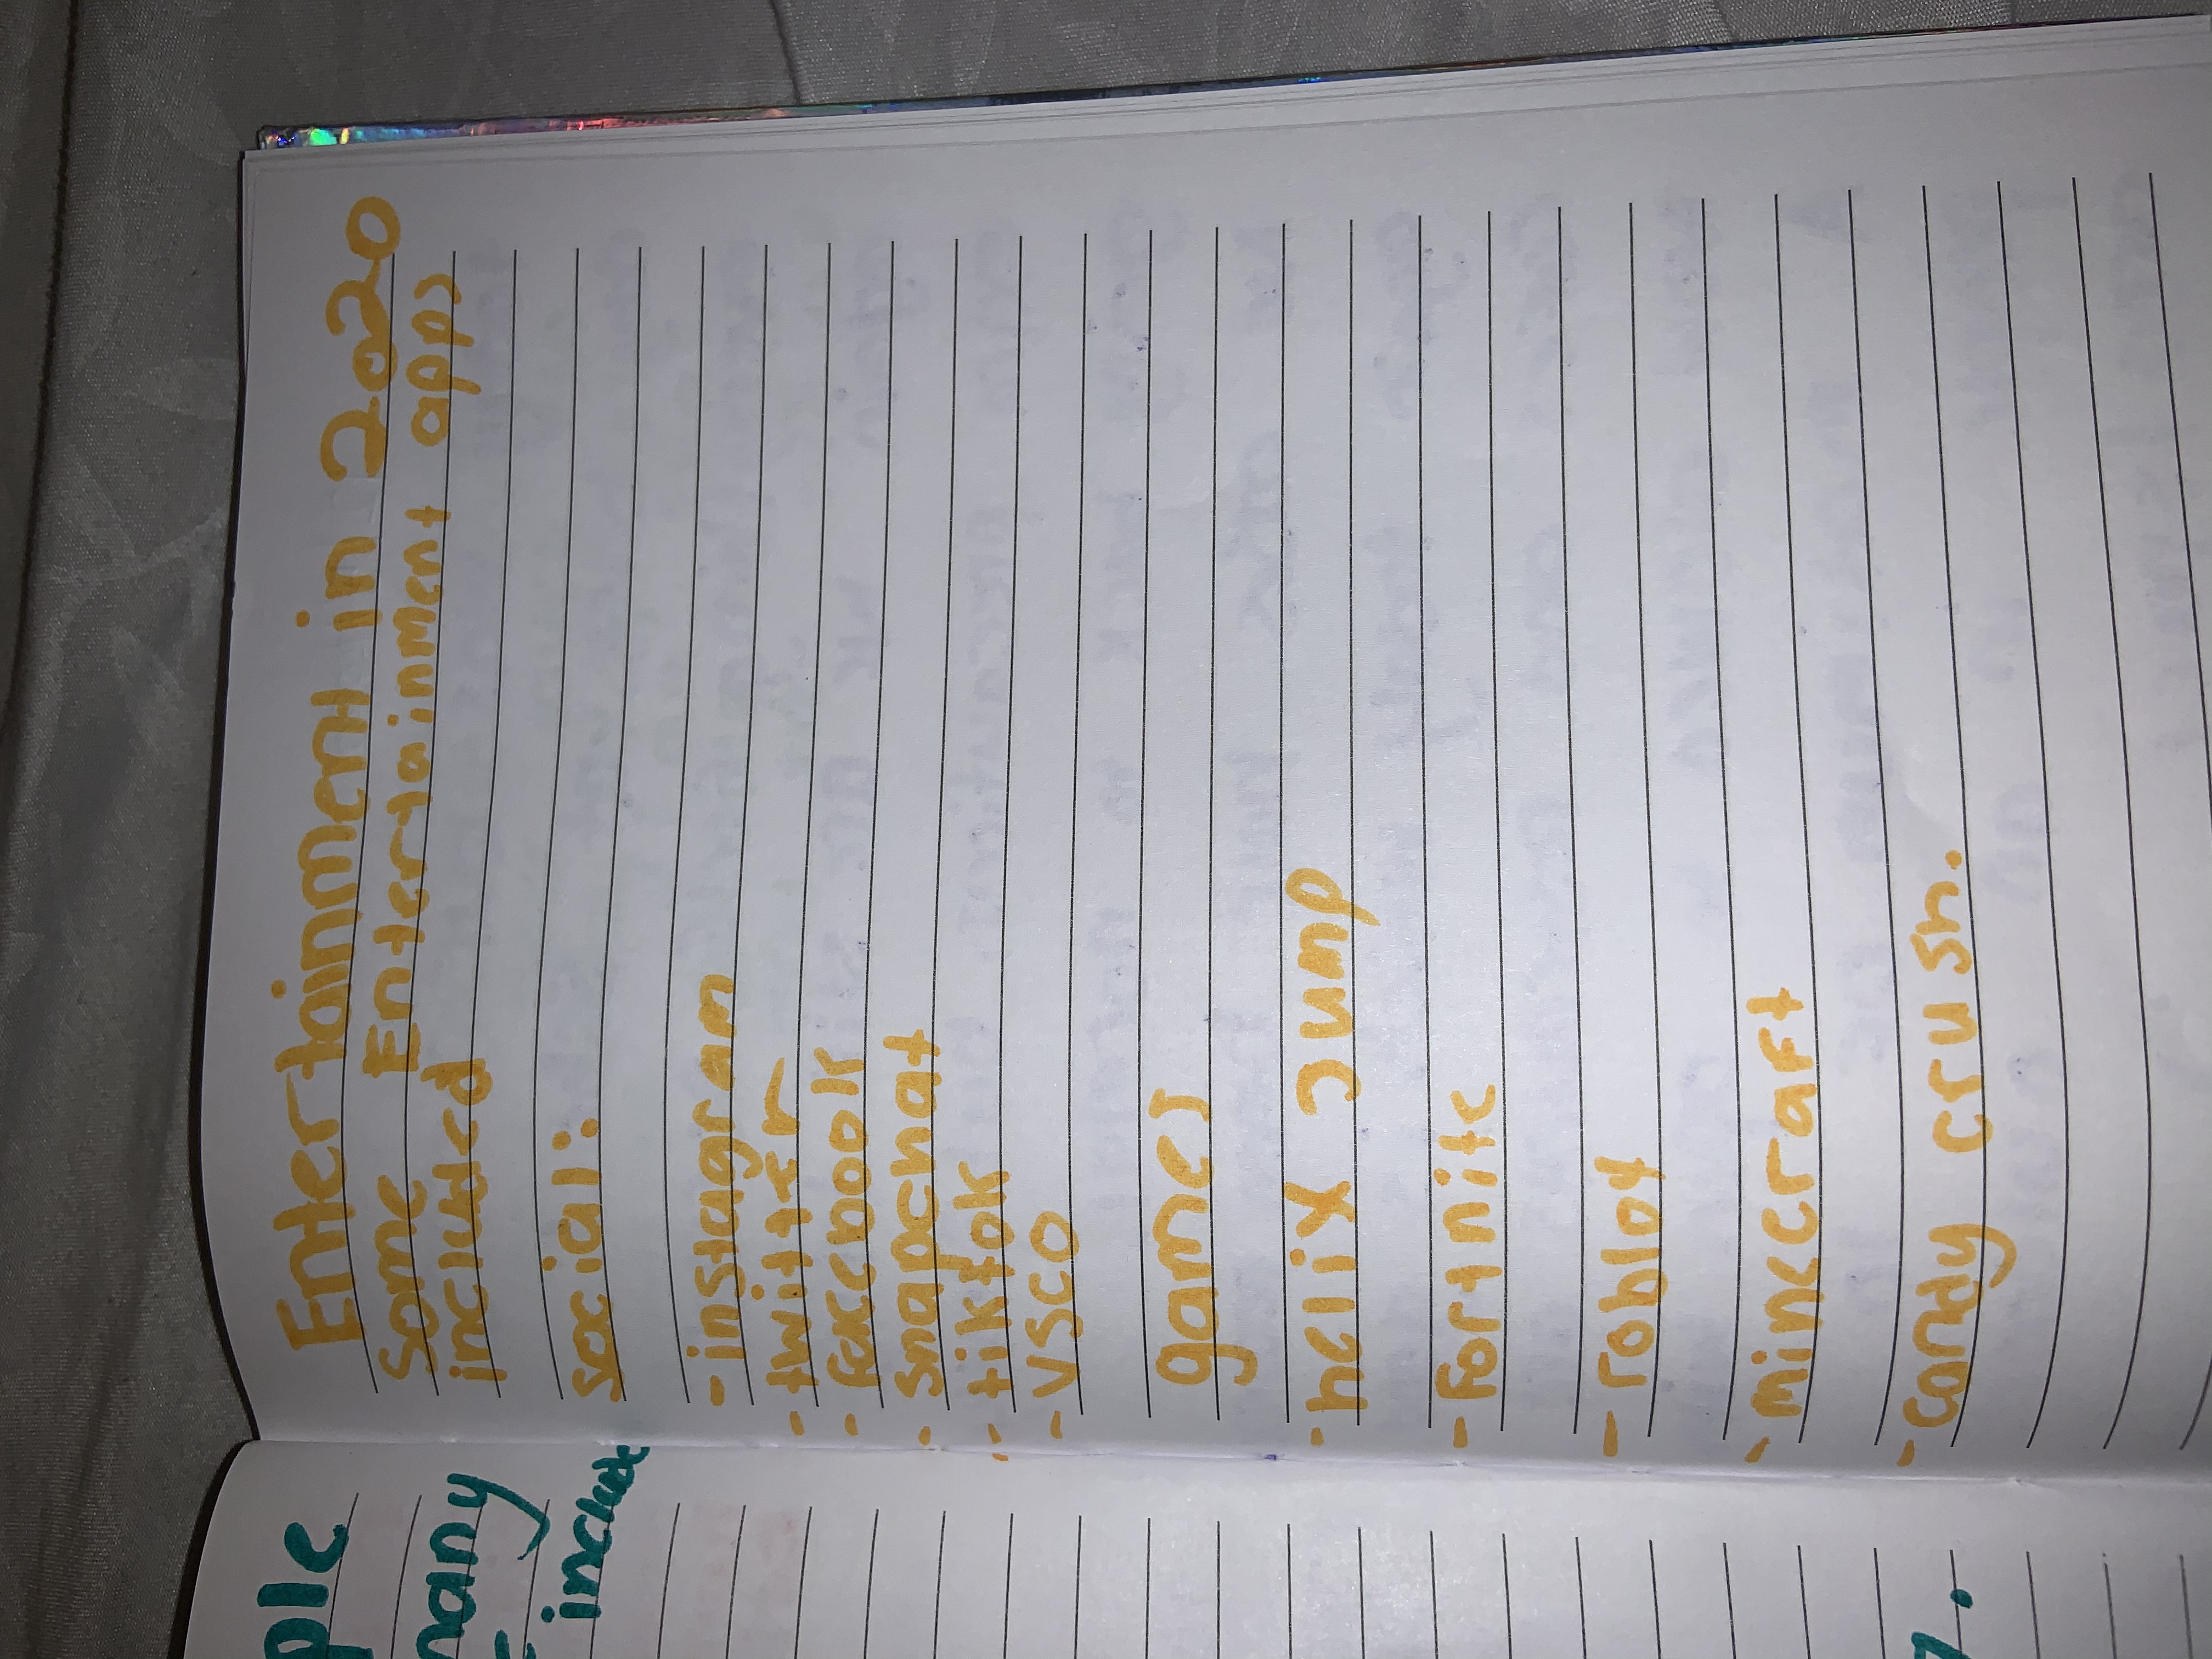 Entertainment in 2020
Some Entertainment apps
included
social:
- instagram
- twitter
- facebook
- snapchat
- tiktok
- VSCO
games
- helix Jump
- Fortnite
- roblox
- minecraft
- candy crush.
many
include